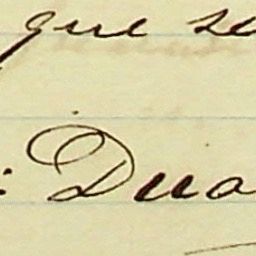 que se
: Dua